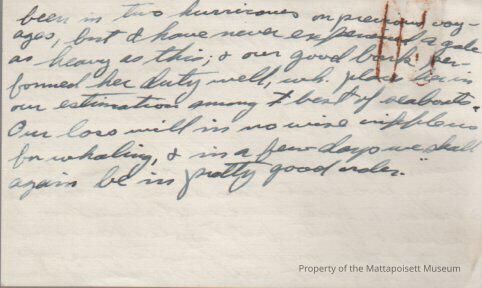 been in two hurricanes on previous voy-
ages, but I have never experienced a gale
as heavy as this; & our good bark per-
formed her duty well, wh. place her in
our estimation among t best of seaboats.
Our loss will in no wise cripple us
for whaling, & in a few days we shall
again be in pretty good order."
Property of the Mattapoisett Museum